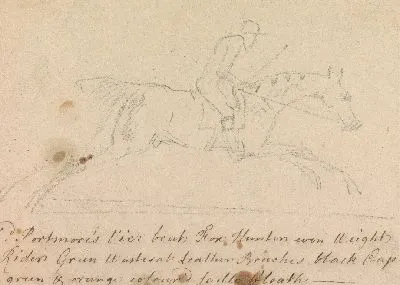 Ld. Portmore's Vice beat Fox Hunter even Weight
Riders Green Wastcoat leather Breaches black Cap
green & orange colour'd saddle Cloath —